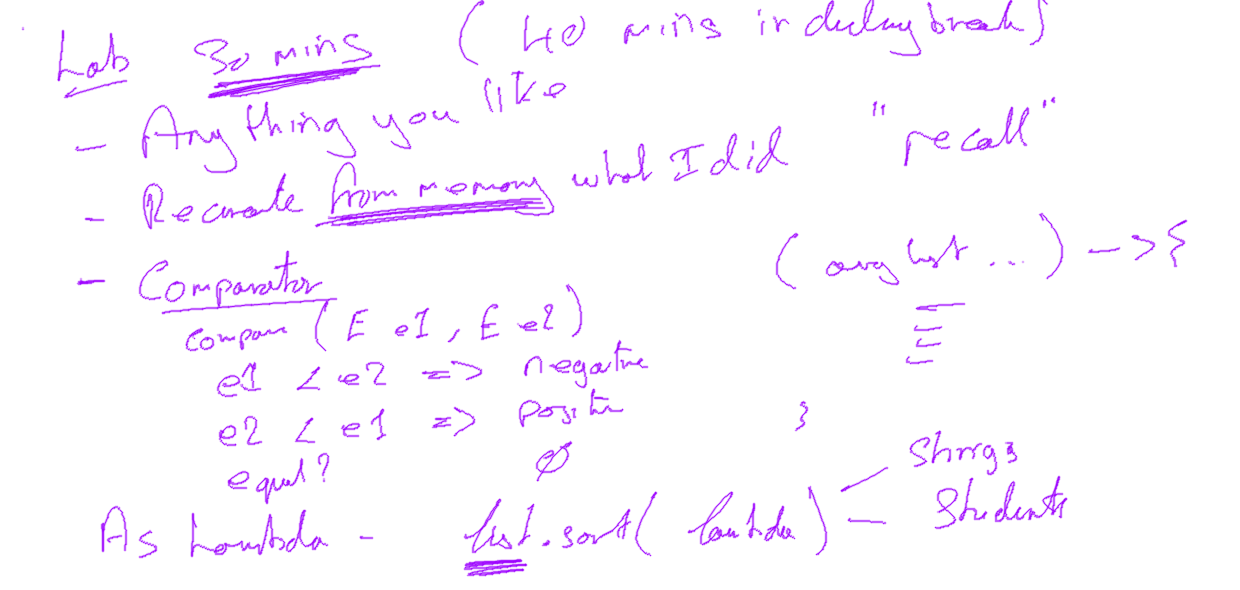 Lab 30 mins (40 mins including break)
- Anything you like
- Recreate from memory what I did "recall"
- Comparator (arg list ...) -> {
compare (E e1, E e2)
e1 < e2 => negative
e2 < e1 => positive }
equal? 0
As Lambda - list.sort( lambda) - Strings
- Students